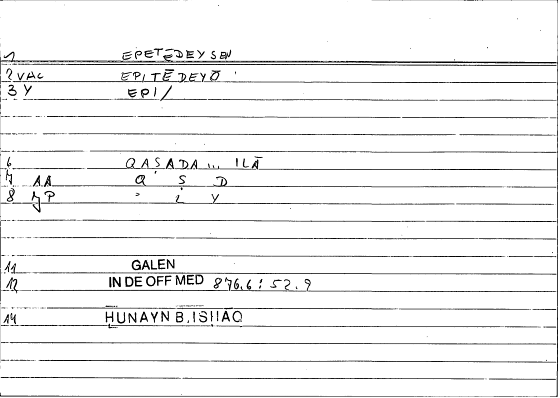 1 EPETĒDEYSEN
2 VAC EPITĒDEYŌ
3 Y EPI/
6 QAṢADA... ILĀ
7 AA Q Ṣ D
8 JP i Y
11 GALEN
12 IN DE OFF MED 876.6 : 52.9
14 HUNAYN B.ISHAQ